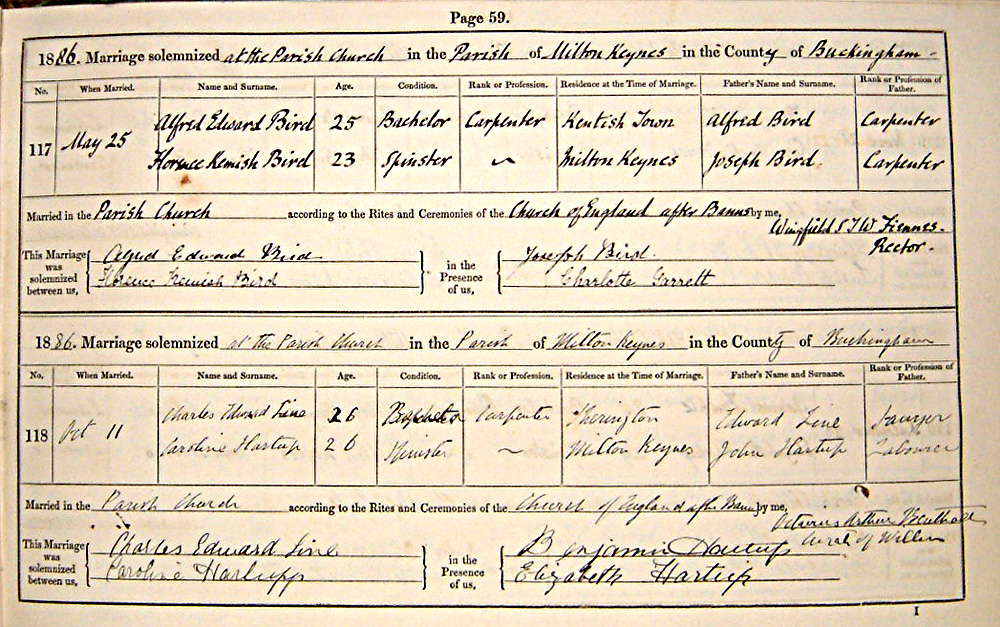 Page 59.
1886. Marriage solemnized at the Parish Church in the Parish of Milton Keynes in the County of Buckingham
No. When Married. Name and Surname. Age. Condition. Rank or Profession. Residence at the Time of Marriage. Father's Name and Surname. Rank or Profession of Father.
117 May 25 Alfred Edward Bird 25 Bachelor Carpenter Kentish Town Alfred Bird Carpenter
Florence Kemish Bird 23 Spinster ~ Milton Keynes Joseph Bird. Carpenter
Married in the Parish Church according to the Rites and Ceremonies of the Church of England after Banns by me,
Wingfield S T W Fiennes.
Rector.
This Marriage was solemnized between us, Alfred Edward Bird in the Presence of us, Joseph Bird.
Florence Kemish Bird Charlotte Garrett
1886. Marriage solemnized at the Parish Church in the Parish of Milton Keynes in the County of Buckingham
No. When Married. Name and Surname. Age. Condition. Rank or Profession. Residence at the Time of Marriage. Father's Name and Surname. Rank or Profession of Father.
118 Oct 11 Charles Edward Line 26 Bachelor Carpenter Sherington Edward Line Sawyer
Caroline Hartup 26 Spinster ~ Milton Keynes John Hartup Labourer
Married in the Parish Church according to the Rites and Ceremonies of the Church of England after Banns by me,
Arthur
Curate of Willen
This Marriage was solemnized between us, Charles Edward Line in the Presence of us, Benjamin Hartup
Caroline Hartupp Elizabeth Hartup
I